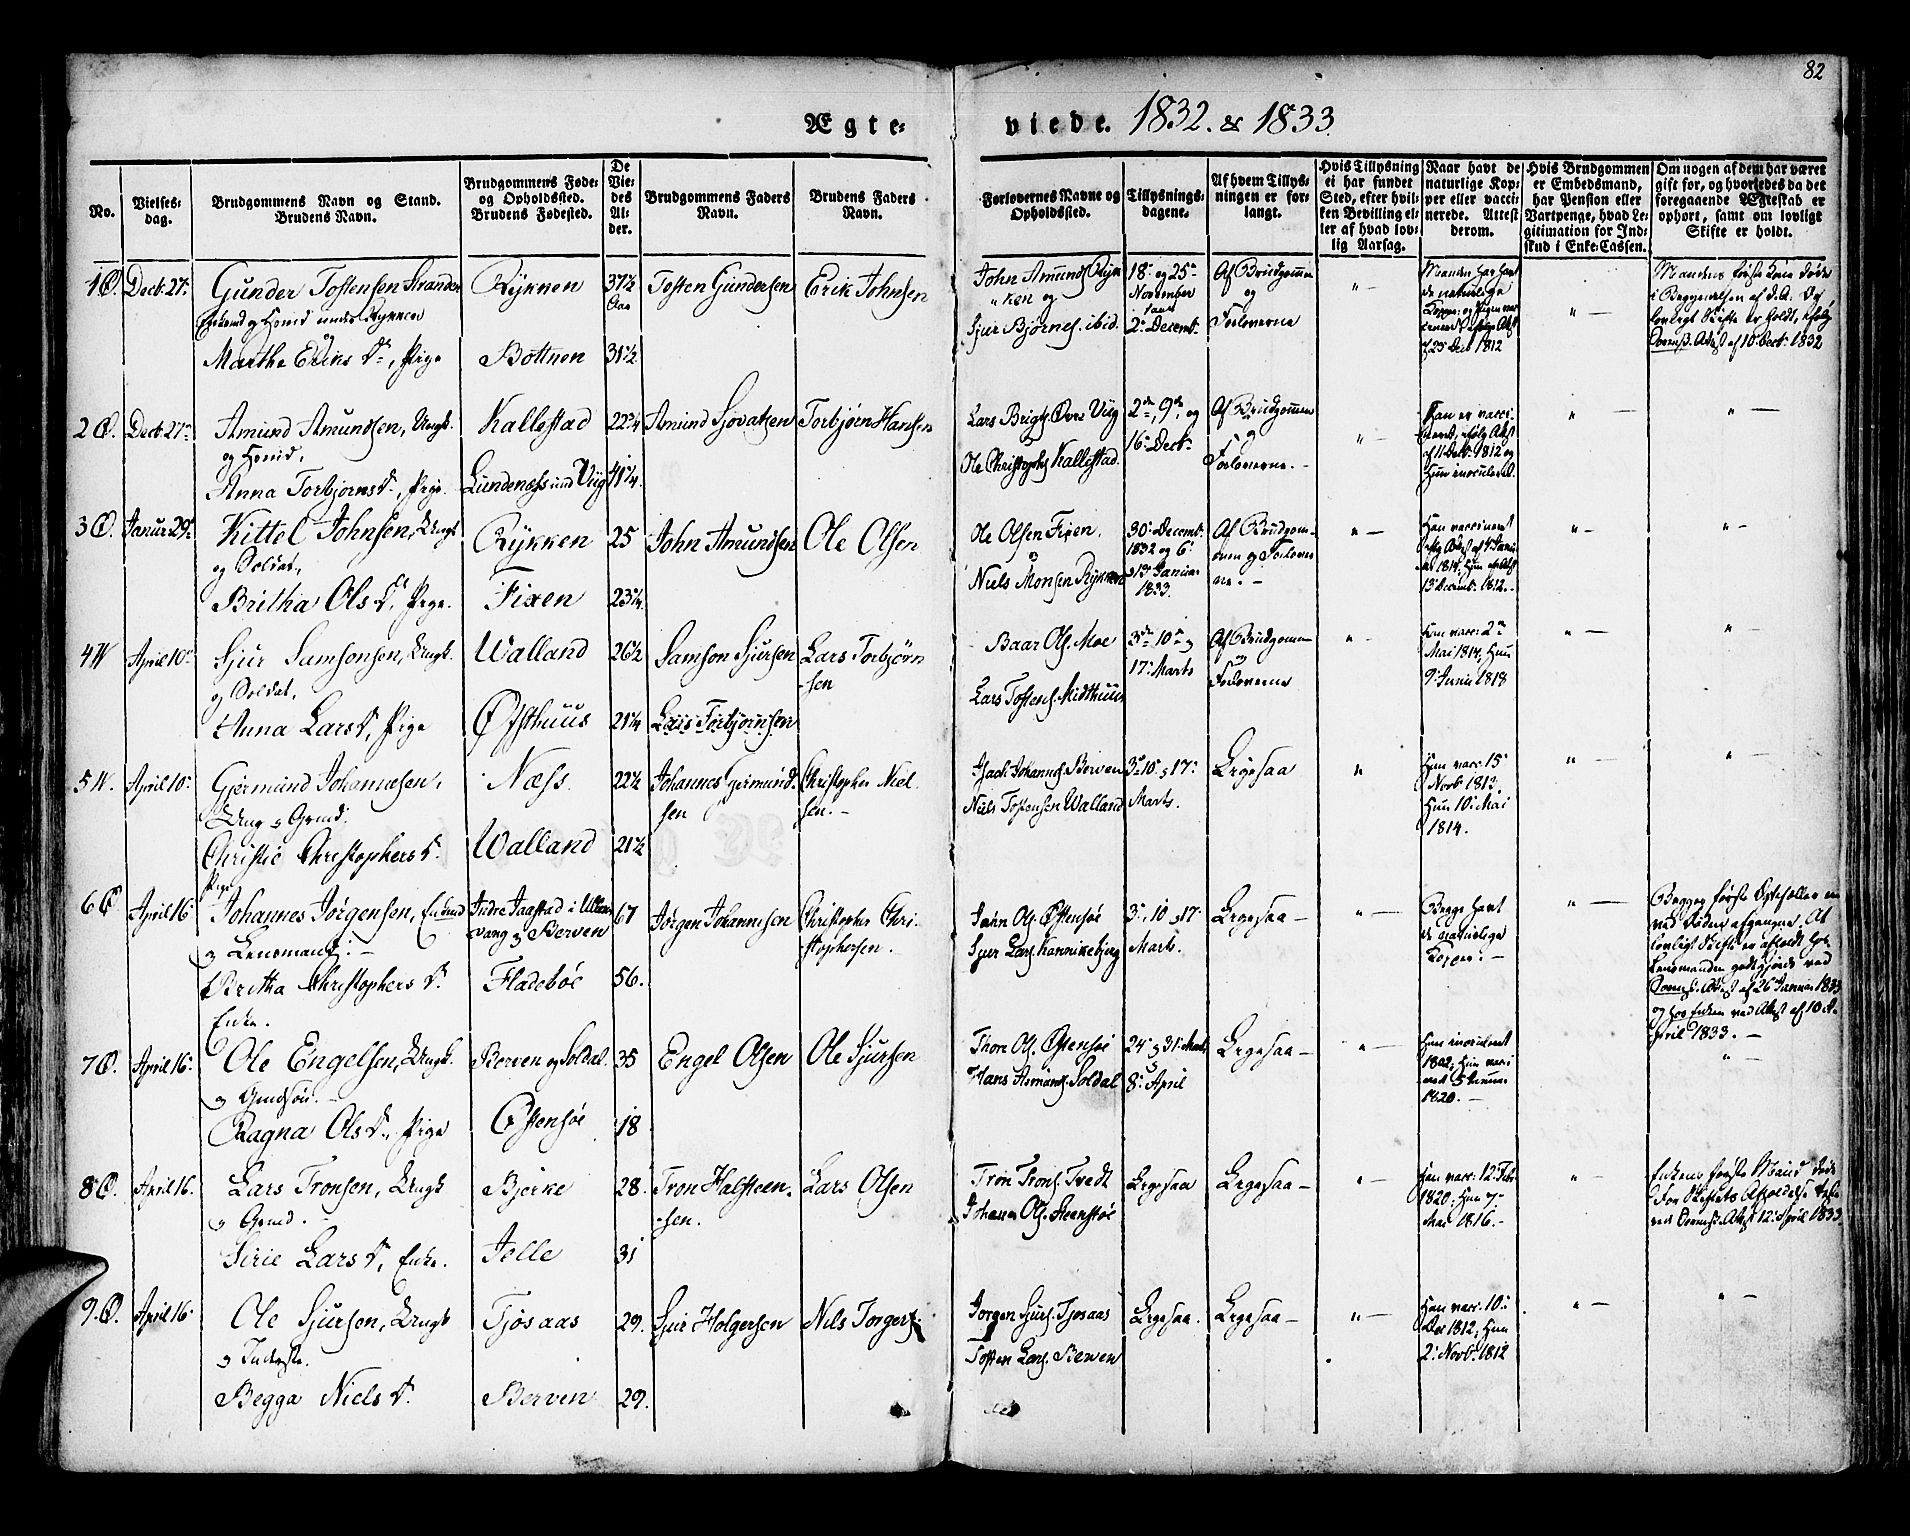 82
Ægte-
viede. 1832. & 1833.
No.
Vielses-
dag.
Brudgommens Navn og Stand.
Brudens Navn.
Brudgommens Føde-
og Opholdssted.
Brudens Fødested.
De
Vie-
des
Al-
der.
Brudgommens Faders
Navn.
Brudens Faders
Navn.
Forlovernes Navne og
Opholdssted.
Tillysnings-
dagene.
Af hvem Tillys-
ningen er for-
langt.
Hvis Tillysning
ei har fundet
Sted, efter hvil-
ken Bevilling el-
ler af hvad lov-
lig Aarsag.
Naar havt de
naturlige Kop-
per eller vacci-
nerede. Attest
derom.
Hvis Brudgommen
er Embedsmand,
har Pension eller
Vartpenge, hvad Le-
gitimation for Ind-
skud i Enke-Cassen.
Om nogen af dem har været
gift før, og hvorledes da det
foregaaende Ægteskab er
ophørt, samt om lovligt
Skifte er holdt.
1 Ø. Decb: 27.
Gunder Tostensen Strander
Enkemd og Hmd under Rykken
Marthe Eriks Dr, Pige
Rykken
Bottnen
37½
Aar
31½
Tosten Gundersen
Erik Johnsen
John Amunds Ryk
ken og
Sjur Björnes. ibid.
18 og 25
November
samt
2 Decemb:
Af Brudgommen
og
Forloverne
Manden har havt
de naturlige
Kopper og Pigen vac
cineret ifølge Attest
af 23 Decb 1812
Mandens første Kone døde
i Begyndelsen af d.A. Og
lovligt Skifte er holdt, ifølg
Attest af 10 Decb: 1832
2 Ø. Decb: 27
Amund Amundsen, Ungk.
og Hmd,
Anna Torbjørns Dr, Pige.
Kallestad
Lundenæss und Viig
22¼
41¼.
Amund Sjovatsen
Torbjørn Hansen
Lars Brigts. Øvre Viig
Ole Christophs Kallestad.
2den, 9de, og
16 Decb:
Af Brudgommen
og
Forloverne.
Han er vacci
neret, ifølg Attest
af 11 Decb: 1812 og
Hun inoculeret.
3 Ø. Januar 29.
Kittel Johnsen, Ungk
og Soldat,
Britha Ols Dr, Pige.
Rykken
Fixen
25
23¼.
John Amundsen
Ole Olsen
Ole Olsen Fixen.
og
Niels Monsen Rykken
30 Decemb:
1832 og 6
og 13 Januar
1833.
Af Brudgom-
men og Forlover
ne.
Han vaccineret
ifølg Attest af 4 Janu
ar 1814, Hun
13 Decemb: 1812.
4 W April 10
Sjur Samsonsen, Ungk.
og Soldat,
Anna Lars Dr, Pige
Walland
Øysthuus
26½
21¼
Samson Sjursen
Lars Torbjørn
sen
Lars Torbjørnsen
Baar Ols. Moe
Lars Tostens. Midthuus
3de 10de og
17 Marts
Af Brudgommen
og
Forloverne
Han vacc: 2
Mai 1814, Hun
9 Junii 1818
5 W. April 10
Gjermund Johannesen,
Ung og Grmd.
Christie Christophers Dr.
Pige
Næss
Walland
22½
21½
Johannes Gjermund
sen
Christopher Niel
sen.
Isach Johannes Berven
Niels Tostensen Walland
3 10 og 17
Marts.
Ligesaa
Han vacc: 15
Novb: 1813.
Hun 10 Mai
1814.
6 Ø April 16
Johannes Jørgensen, Enkmd
og Lensmand.
Britha Christophers Dr.
Enke.
Indre Jaastad i Ullens
vang og Berven
Fladebøe
67
56.
Jørgen Johannesen
Christopher Chri-
stophersen.
Jørn Ols. Østensøe
Sjur Lars. Kannikebjerg
3, 10 og 17
Marts.
Ligesaa
Begge havt
de naturlige
Kopper.
Begges første Egtefæller er
ved Døden afgangne. At
lovligt Skifte er afholdt hos
Lensmanden godtgjørdes ved
Attest af 26 Januar 1833
og hos Enken ved Attest af 10 A-
pril 1833.
7 Ø. April 16.
Ole Engelsen, Ungk.
og Grmdsøn.
Ragna Ols Dr, Pige
Berven og Soldal.
Østensøe
35
18
Engel Olsen
Ole Sjursen
Thore Ols. Østensøe
Hans Asmunds. Soldal
24 og 31 Marts
8 April
Ligesaa
Han inoculeret
1802, Hun vacci
neret 5 Januar
1820.
8 Ø. April 16.
Lars Tronsen, Ungk
og Grmd.
Sirie Lars Dr, Enke.
Bjerke
Jelle
28.
31
Tron Halsteen-
sen.
Lars Olsen
Tron Trons. Tvedt
Johannes Ols. Steenstøe
Ligesaa
Ligesaa
Han vacc: 12 Febr
1820. Hun 7
Mai 1816.
Enkens første Mand døde
for Skiftets Afholdelse
ved Attest 12 April 1833
9. Ø. April 16
Ole Sjursen, Ungk
og Inderste.
Begga Niels Dr.
Tjosaas
Berven
29.
29.
Sjur Holgersen
Nils Torgers.
Jørgen Sjurs. Tjosaas
Tosten Lars. Berven
Ligesaa.
Ligesaa
Han vacc: 10
Dec 1812, Hun
2 Novb: 1812